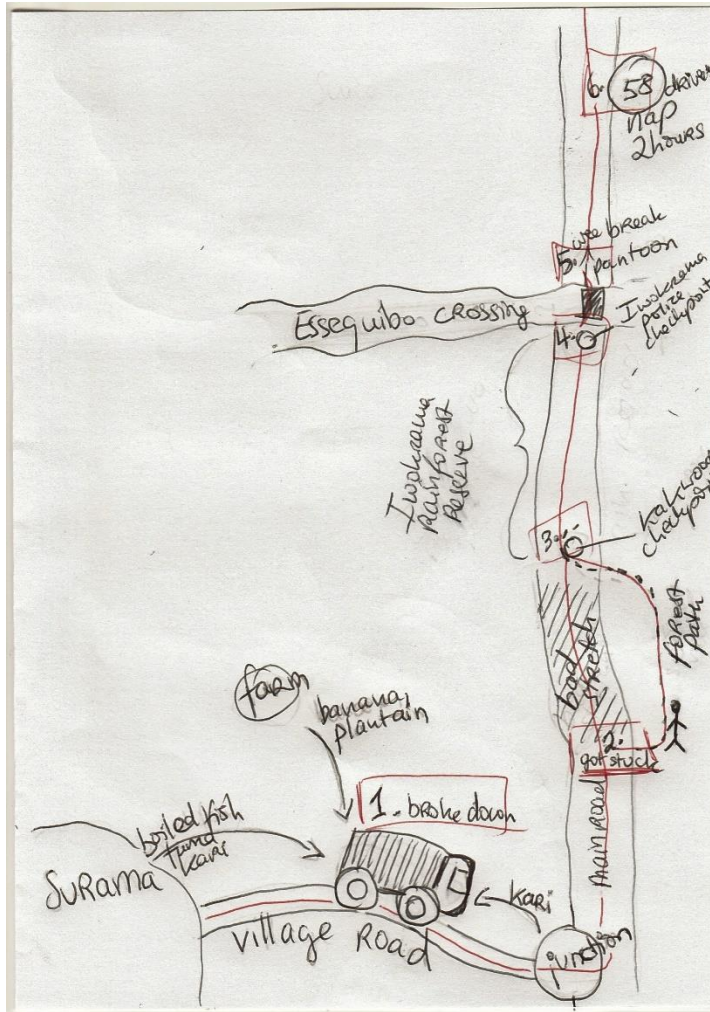 6.
58
driver
nap
2hours
wee break
5.
pantoon
Essequibo CROSSING
4.
Iwokrama
police
checkpoint
Iwokrama
Rainforest
Reserve
3.
checkpoint
forest
path
bad
stretch
2.
got stuck
farm
banana,
plantain
1. broke down
boiled fish
kari
Main Road
SURAMA
Kari
village Road
junction